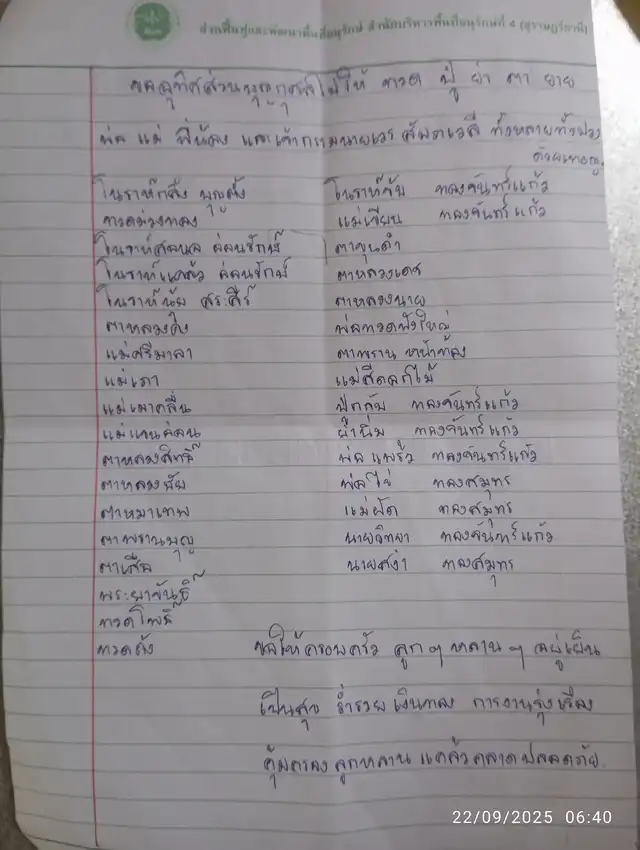 ส่วนฟื้นฟูและพัฒนาพื้นที่อนุรักษ์ สำนักบริหารพื้นที่อนุรักษ์ที่ 4 (สุราษฎร์ธานี)
ขออุทิศส่วนบุญกุศลไปให้ ทวด ปู่ ย่า ตา ยาย
พ่อ แม่ พี่น้อง และเจ้ากรรมนายเวร สัมภเวสี ทั้งหลายทั้งปวง
ด้วยเทอญ
โนราห์กลั่ง บุญตั้ง
โนราห์จับ ทองจันทร์แก้ว
ทวดม่วงทอง
แม่เขียน ทองจันทร์แก้ว
โนราห์สอนล อ่อนรักษ์
ตาขุนดำ
โนราห์แคล้ว อ่อนรักษ์
ตาหลวงเดช
โนราห์น้ย สระศีร์
ตาหลวงนาย
ตาหลวงคง
พ่อทวดฝั่งใหญ่
แม่ศรีมาลา
ตาพราน หน้าทอง
แม่เภา
แม่สีดอกไม้
แม่เมาคลื่น
ปู่กลับ ทองจันทร์แก้ว
แม่แขนอ่อน
ย่านิ่ม ทองจันทร์แก้ว
ตาหลวงสิทธิ์
พ่อ แพร้ว ทองจันทร์แก้ว
ตาหลวงชัย
พ่อไข่ ทองสมุทร
ตาหมาเทพ
แม่ผัด ทองสมุทร
ตาพรานบุญ
นายวิทยา ทองจันทร์แก้ว
ตาเสือ
นายสง่า ทองสมุทร
พระยาขันธ์
ทวดโพธิ์
ทวดถัง
ขอให้ครอบครัว ลูกๆ หลานๆ อยู่เย็น
เป็นสุข ร่ำรวย เงินทอง การงานรุ่งเรือง
คุ้มครอง ลูกหลาน แคล้วคลาดปลอดภัย
22/09/2025 06:40